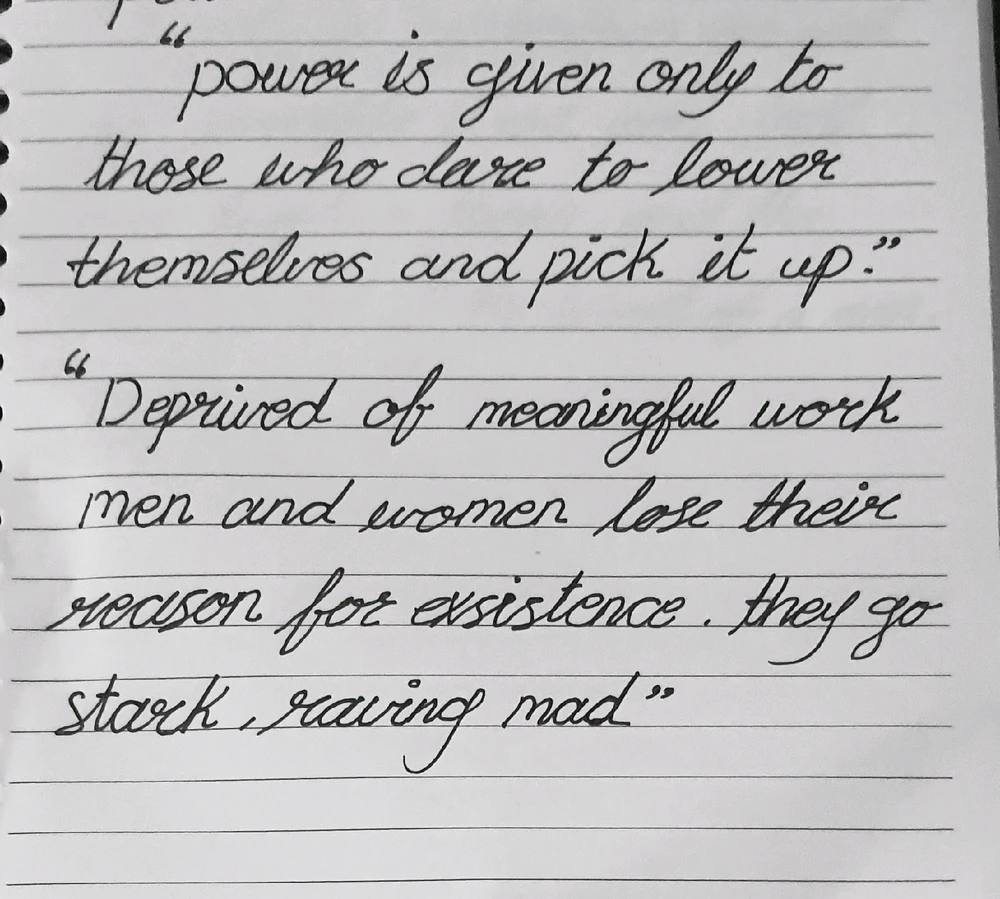 “power is given only to
those who dare to lower
themselves and pick it up.”
“Deprived of meaningful work
men and women lose their
reason for exsistence. they go
stark, raving mad”